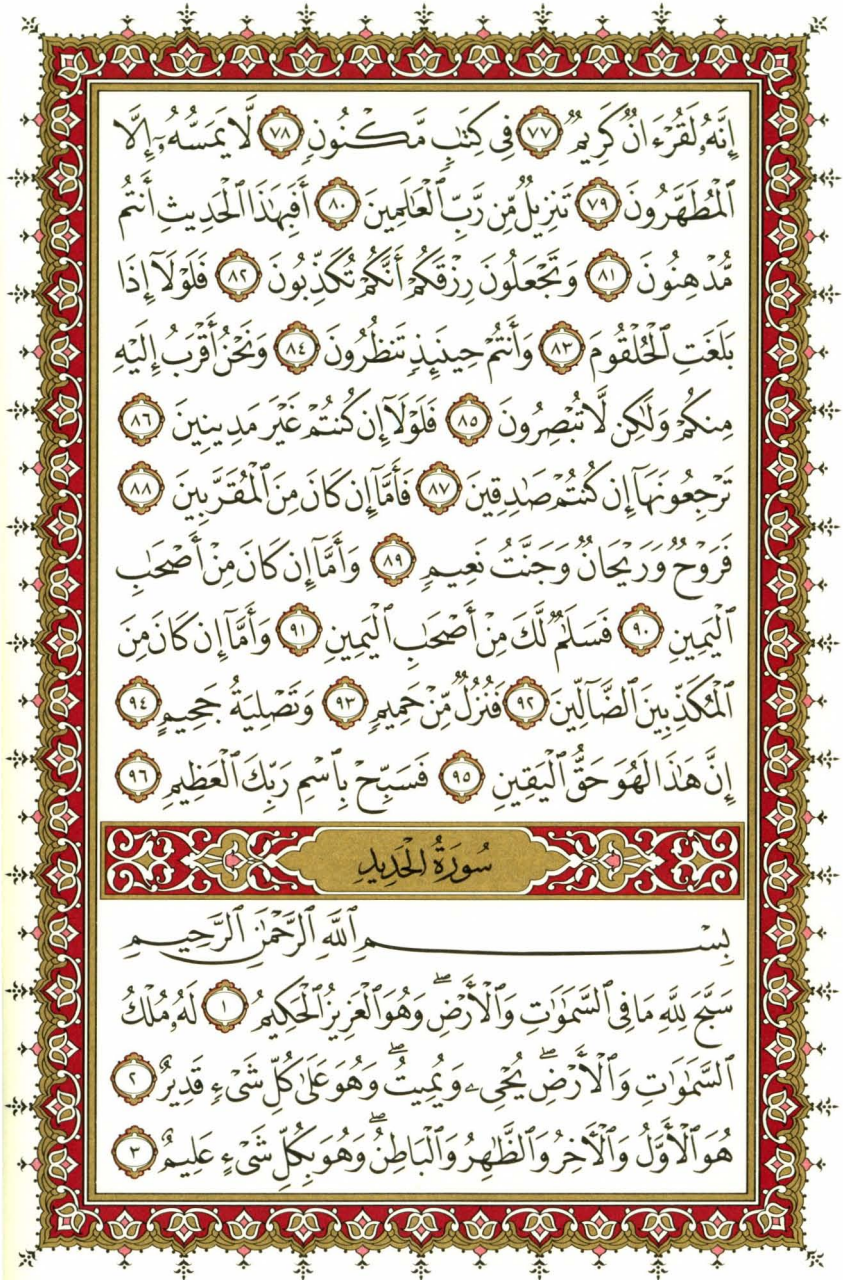 إِنَّهُۥ لَقُرْءَانٌ كَرِيمٌ ٧٧ فِى كِتَٰبٍ مَّكْنُونٍ ٧٨ لَّا يَمَسُّهُۥٓ إِلَّا
ٱلْمُطَهَّرُونَ ٧٩ تَنزِيلٌ مِّن رَّبِّ ٱلْعَٰلَمِينَ ٨٠ أَفَبِهَٰذَا ٱلْحَدِيثِ أَنتُم
مُّدْهِنُونَ ٨١ وَتَجْعَلُونَ رِزْقَكُمْ أَنَّكُمْ تُكَذِّبُونَ ٨٢ فَلَوْلَآ إِذَا
بَلَغَتِ ٱلْحُلْقُومَ ٨٣ وَأَنتُمْ حِينَئِذٍ تَنظُرُونَ ٨٤ وَنَحْنُ أَقْرَبُ إِلَيْهِ
مِنكُمْ وَلَٰكِن لَّا تُبْصِرُونَ ٨٥ فَلَوْلَآ إِن كُنتُمْ غَيْرَ مَدِينِينَ ٨٦
تَرْجِعُونَهَآ إِن كُنتُمْ صَٰدِقِينَ ٨٧ فَأَمَّآ إِن كَانَ مِنَ ٱلْمُقَرَّبِينَ ٨٨
فَرَوْحٌ وَرَيْحَانٌ وَجَنَّتُ نَعِيمٍ ٨٩ وَأَمَّآ إِن كَانَ مِنْ أَصْحَٰبِ
ٱلْيَمِينِ ٩٠ فَسَلَٰمٌ لَّكَ مِنْ أَصْحَٰبِ ٱلْيَمِينِ ٩١ وَأَمَّآ إِن كَانَ مِنَ
ٱلْمُكَذِّبِينَ ٱلضَّآلِّينَ ٩٢ فَنُزُلٌ مِّنْ حَمِيمٍ ٩٣ وَتَصْلِيَةُ جَحِيمٍ ٩٤
إِنَّ هَٰذَا لَهُوَ حَقُّ ٱلْيَقِينِ ٩٥ فَسَبِّحْ بِٱسْمِ رَبِّكَ ٱلْعَظِيمِ ٩٦
سُورَةُ الحَدِيدِ
بِسْمِ ٱللَّهِ ٱلرَّحْمَٰنِ ٱلرَّحِيمِ
سَبَّحَ لِلَّهِ مَا فِى ٱلسَّمَٰوَٰتِ وَٱلْأَرْضِ ۖ وَهُوَ ٱلْعَزِيزُ ٱلْحَكِيمُ ١ لَهُۥ مُلْكُ
ٱلسَّمَٰوَٰتِ وَٱلْأَرْضِ ۖ يُحْىِۦ وَيُمِيتُ ۖ وَهُوَ عَلَىٰ كُلِّ شَىْءٍ قَدِيرٌ ٢
هُوَ ٱلْأَوَّلُ وَٱلْءَاخِرُ وَٱلظَّٰهِرُ وَٱلْبَاطِنُ ۖ وَهُوَ بِكُلِّ شَىْءٍ عَلِيمٌ ٣